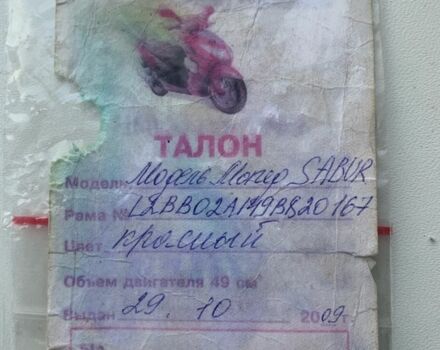 ТАЛОН
Модель Модель Мопед SABUR
Рама № LZBB02A149B820167
Цвет красный
Объем двигателя 49 см
Выдан 29. 10 2009 г.